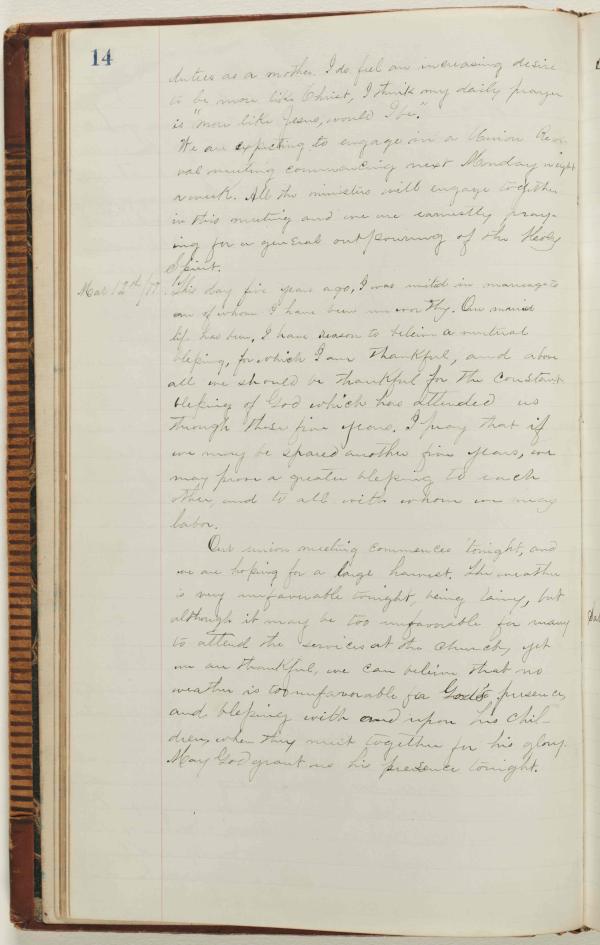 14
duties as a mother. I do feel an increasing desire
to be more like Christ, I think my daily prayer
is "more like Jesus, would I be."
We are expecting to engage in a Union Revi-
val meeting commencing next Monday night
a week. All the ministers will engage together
in this meeting and we are earnestly pray-
ing for a general outpouring of the Holy
Spirit.
Mar 12th/77. This day five years ago, I was united in marriage to
one of whom I have been unworthy. Our married
life has been, I have reason to believe a mutual
blessing, for which I am thankful, and above
all we should be thankful for the constant
blessing of God which has attended us
through these five years. I pray that if
we may be spared another five years, we
may prove a greater blessing to each
other, and to all with whom we may
labor.
Our union meeting commences tonight, and
we are hoping for a large harvest. The weather
is very unfavorable tonight, being rainy, but
although it may be too unfavorable for many
to attend the services at the church, yet
we are thankful, we can believe that no
weather is too unfavorable for God's presence,
and blessing with and upon his chil-
dren, when they meet together for his glory.
May God grant us his presence tonight.